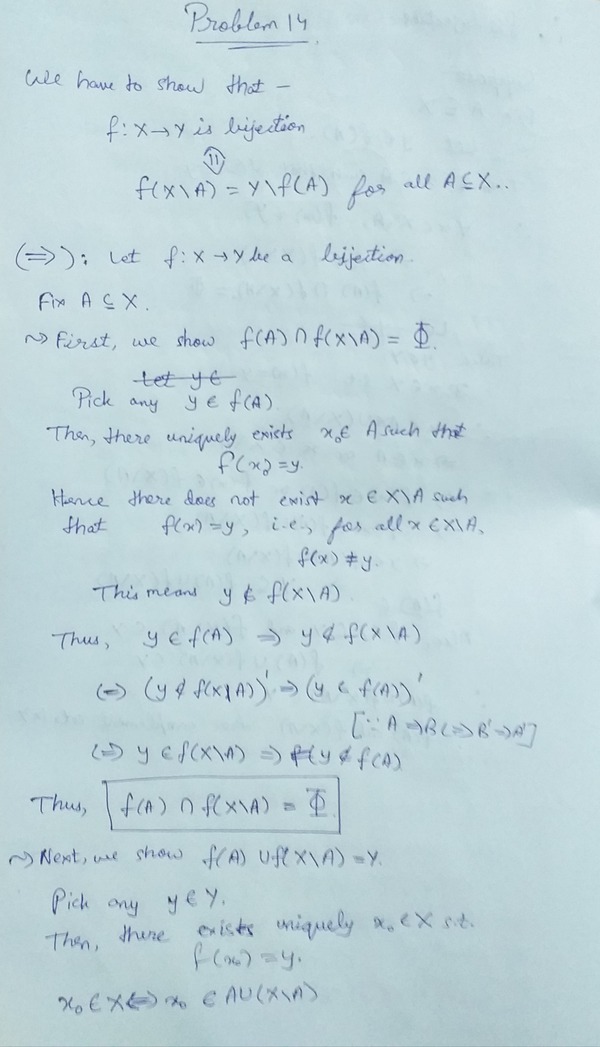 Problem 14
We have to show that —
f: X → Y is bijection
⇕
f(X\A) = Y\f(A) for all A ⊆ X..
(⇒): Let f: X → Y be a bijection.
Fix A ⊆ X.
~> First, we show f(A) ∩ f(X\A) = Φ.
Let y ∈
Pick any y ∈ f(A).
Then, there uniquely exists x₀ ∈ A such that
f(x₀) = y.
Hence there does not exist x ∈ X\A such
that f(x) = y, i.e., for all x ∈ X\A,
f(x) ≠ y.
This means y ∉ f(X\A)
Thus, y ∈ f(A) ⇒ y ∉ f(X\A)
(⇒) (y ∉ f(X\A))' ⇒ (y ∈ f(A))'
[∵ A ⇒ B ⟺ B' ⇒ A']
(⇒) y ∈ f(X\A) ⇒ y ∉ f(A)
Thus, f(A) ∩ f(X\A) = Φ.
~> Next, we show f(A) ∪ f(X\A) = Y.
Pick any y ∈ Y.
Then, there exists uniquely x₀ ∈ X s.t.
f(x₀) = y.
x₀ ∈ X ⟺ x₀ ∈ A∪(X\A)